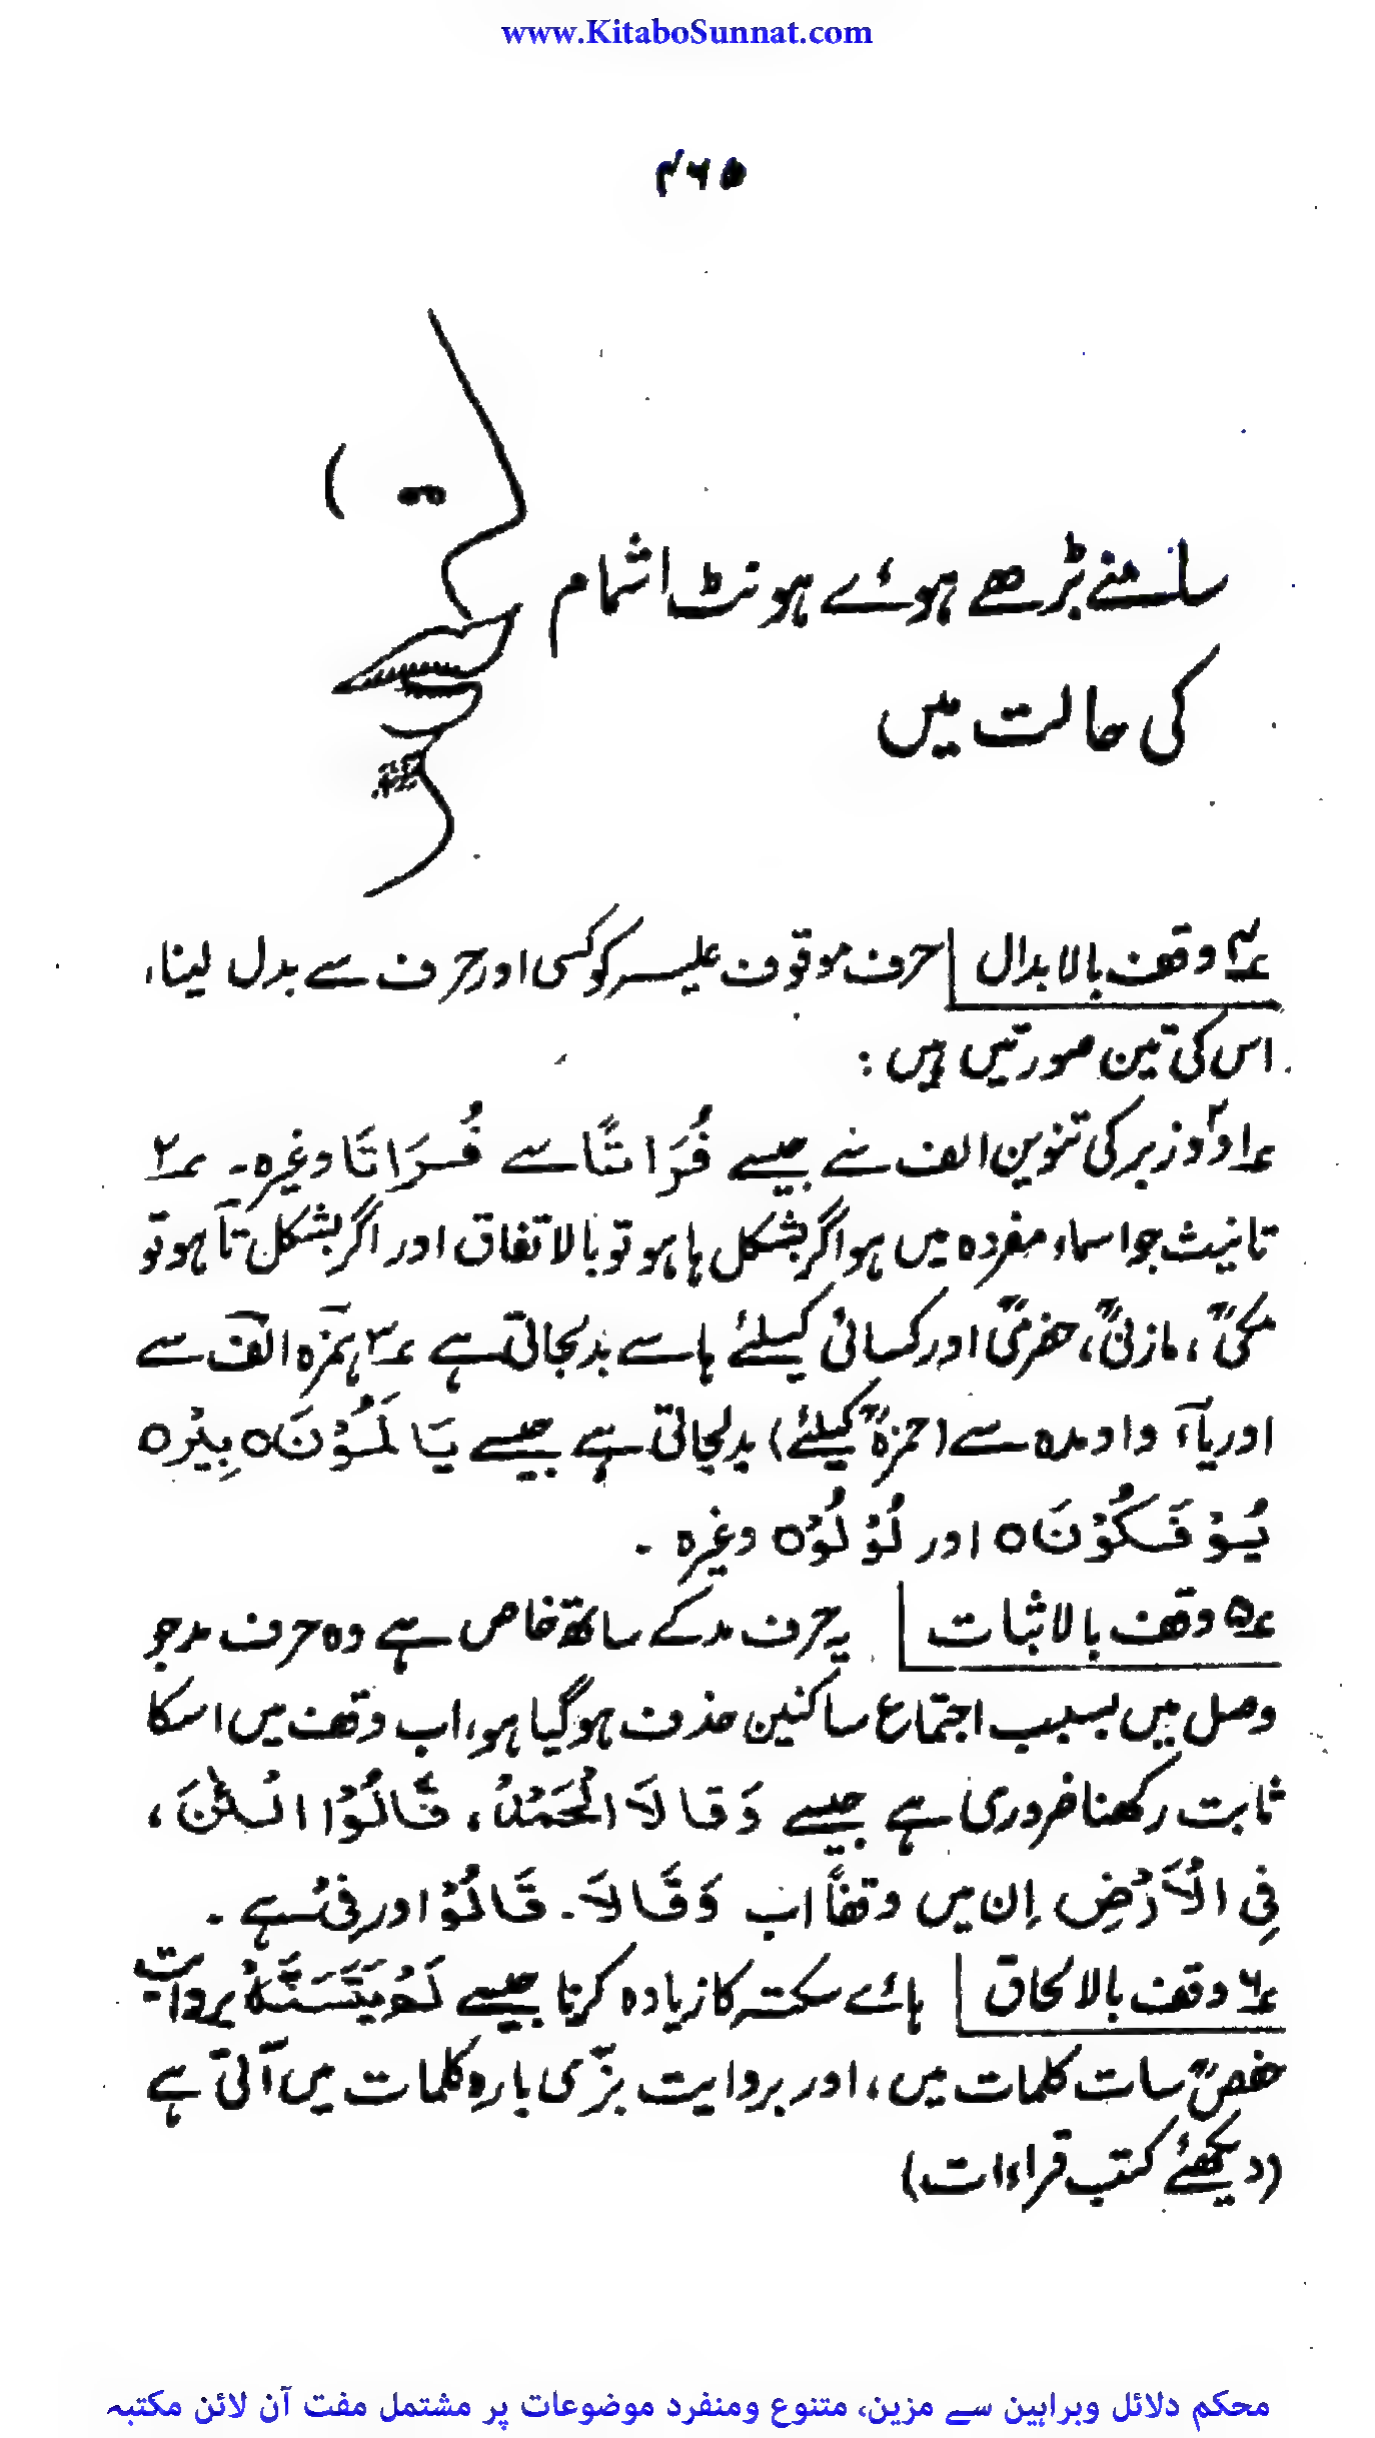 www.KitaboSunnat.com
۴۶۵
سامنے بڑھے ہوئے ہونٹ اشمام
کی حالت میں
۴؎ وقف بالابدال حرف موقوف علیہ کو کسی اور حرف سے بدل لینا،
اس کی تین صورتیں ہیں:
۱؎ دو زبر کی تنوین الف سے جیسے فُرَاتًا سے فُرَاتَا وغیرہ۔ ۲؎
تانیث جو اسماء مفردہ میں ہو اگر بشکل ہا ہو تو بالاتفاق اور اگر بشکل تا ہو تو
مکیؒ، مازنیؒ، حضرمیؒ اور کسائی کیلئے ہا سے بدلجاتی ہے ۳؎ ہمزہ الف سے
اور یاء واو مدہ سے (حمزہؒ کیلئے) بدلجاتی ہے جیسے یَالَمُوْنَ٥ بِیْر٥
یُوْفَکُوْنَ٥ اور لُوْلُوْ٥ وغیرہ ۔
۵؎ وقف بالاثبات یہ حرف مد کے ساتھ خاص ہے وہ حرف مد جو
وصل میں بسبب اجتماع ساکنین حذف ہو گیا ہو، اب وقف میں اسکا
ثابت رکھنا ضروری ہے جیسے وَقَالَا الْحَمْدُ، قَالُوْا الْـٰٔنَ،
فِی الْاَرْضِ اِن میں وقفاً اب وَقَالَا۔ قَالُوْا اور فِیْ ہے ۔
۶؎ وقف بالالحاق ہائے سکتہ کا زیادہ کرنا جیسے لَمْ یَتَسَنَّہْ بروایت
حفصؒ سات کلمات میں، اور بروایت بزّی بارہ کلمات میں آتی ہے
(دیکھئے کتب قراءات)
محکم دلائل وبراہین سے مزین، متنوع ومنفرد موضوعات پر مشتمل مفت آن لائن مکتبہ